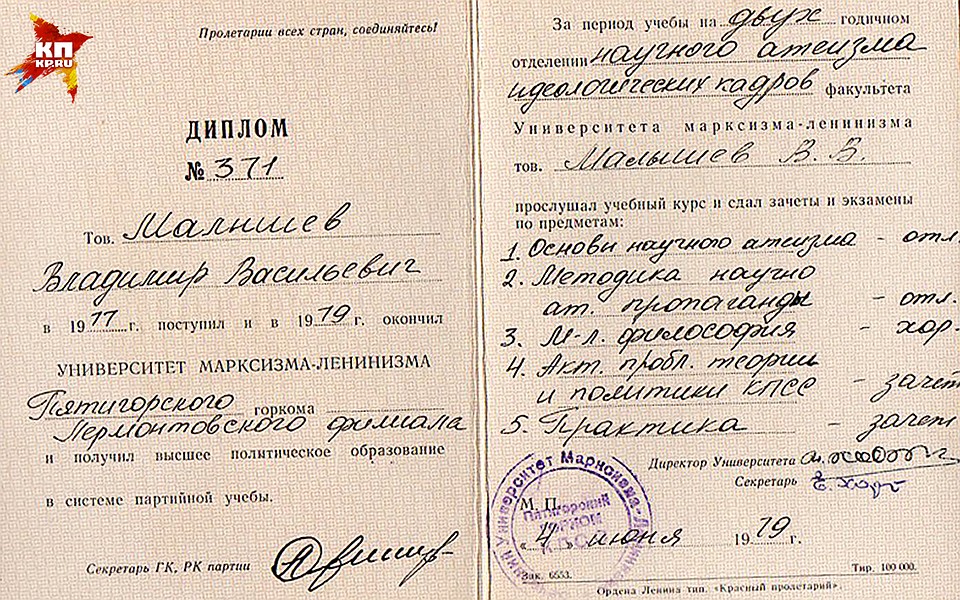 КП
KP.RU
Пролетарии всех стран, соединяйтесь!
ДИПЛОМ
№ 371
Тов. Малышев
Владимир Васильевич
в 1977 г. поступил и в 1979 г. окончил
УНИВЕРСИТЕТ МАРКСИЗМА-ЛЕНИНИЗМА
Пятигорского горкома
Лермонтовского филиала
и получил высшее политическое образование
в системе партийной учебы.
Секретарь ГК, РК партии
За период учебы на двух годичном
отделении научного атеизма
идеологических кадров факультета
Университета марксизма-ленинизма
тов. Малышев В. В.
прослушал учебный курс и сдал зачеты и экзамены
по предметам:
1. Основы научного атеизма - отл.
2. Методика научно
ат. пропаганды - отл.
3. М-л. философия - хор.
4. Акт. пробл. теории
и политики КПСС - зачет
5. Практика - зачет
Директор Университета
Секретарь
Университет Марксизма-Ленинизма
Пятигорский
горком
КПСС
М. П.
«4» июня 1979 г.
Зак. 6553. Тир. 100 000.
Ордена Ленина тип. «Красный пролетарий».